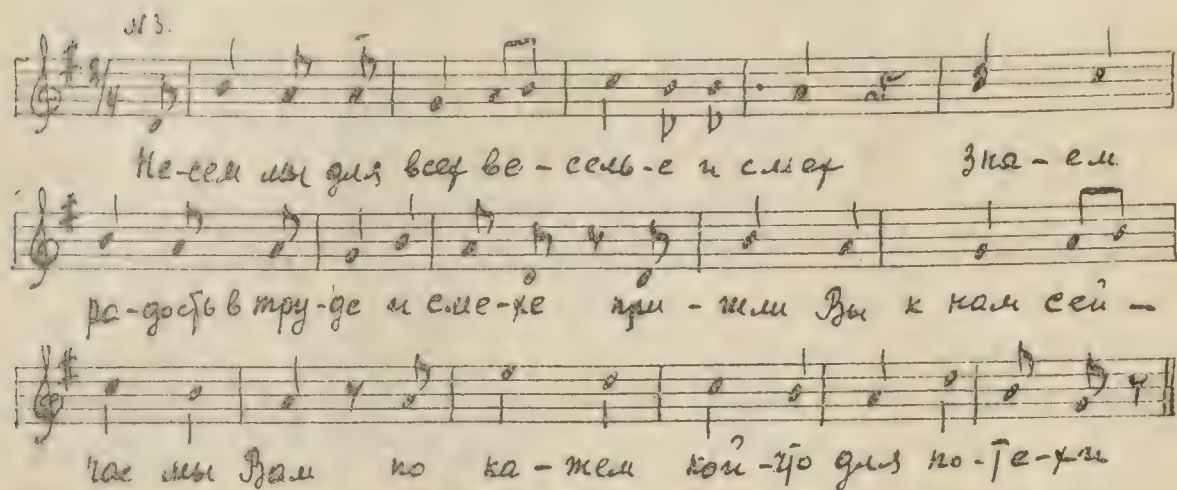 № 3.
Не-сем мы для всех ве-сель-е и смех Зна-ем
ра-дость в тру-де и сме-хе при-шли Вы к нам сей-
час мы Вам по ка-жем кой-что для по-те-хи